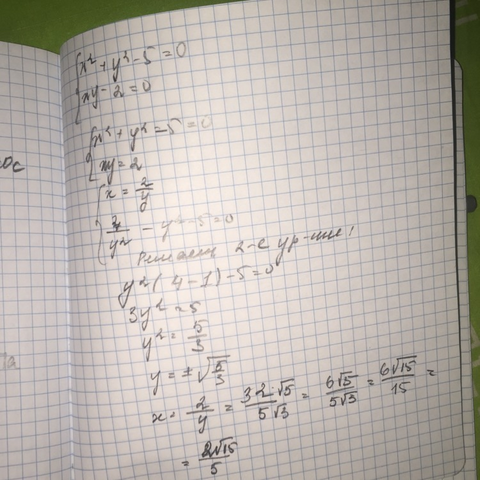 x² + y² - 5 = 0
xy - 2 = 0
x² + y² - 5 = 0
xy = 2
x = 2/y
4/y² - y² - 5 = 0
Решаем 2-е ур-ние:
y²(4 - 1) - 5 = 0
3y² = 5
y² = 5/3
y = ±√(5/3)
x = 2/y = 3·2√5/5√3 = 6√5/5√3 = 6√15/15 =
= 2√15/5